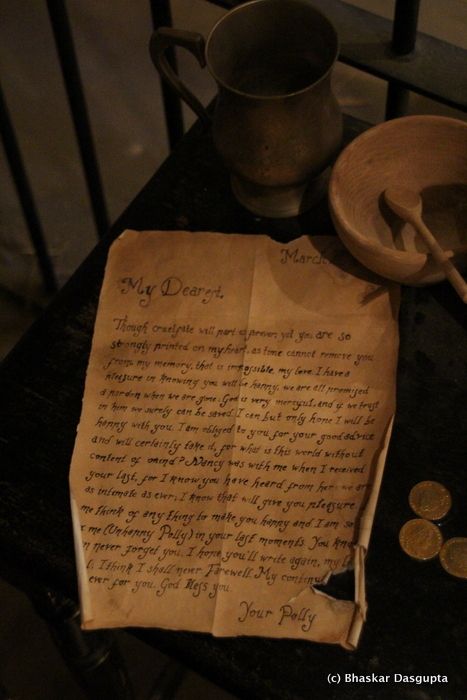 March
My Dearest,
Though cruel fate will part us forever, yet you are so
strongly printed on my heart, as time cannot remove you
from my memory, that is impossible, my love. I have a
pleasure in knowing you will be happy, we are all promised
a pardon when we are gone. God is very merciful, and if we trust
in him we surely can be saved. I can but only hope I will be
happy with you. I am obliged to you for your good advice
and will certainly take it, for what is this world without
content of mind? Nancy was with me when I received
your last, for I know you have heard from her: we are
as intimate as ever; I know that will give you pleasure
me think of any thing to make you happy and I am so
me (Unhappy Polly) in your last moments. You know
n never forget you. I hope you'll write again, my
I think I shall never Farewell My
ever for you. God Bless you.
Your Polly
(c) Bhaskar Dasgupta